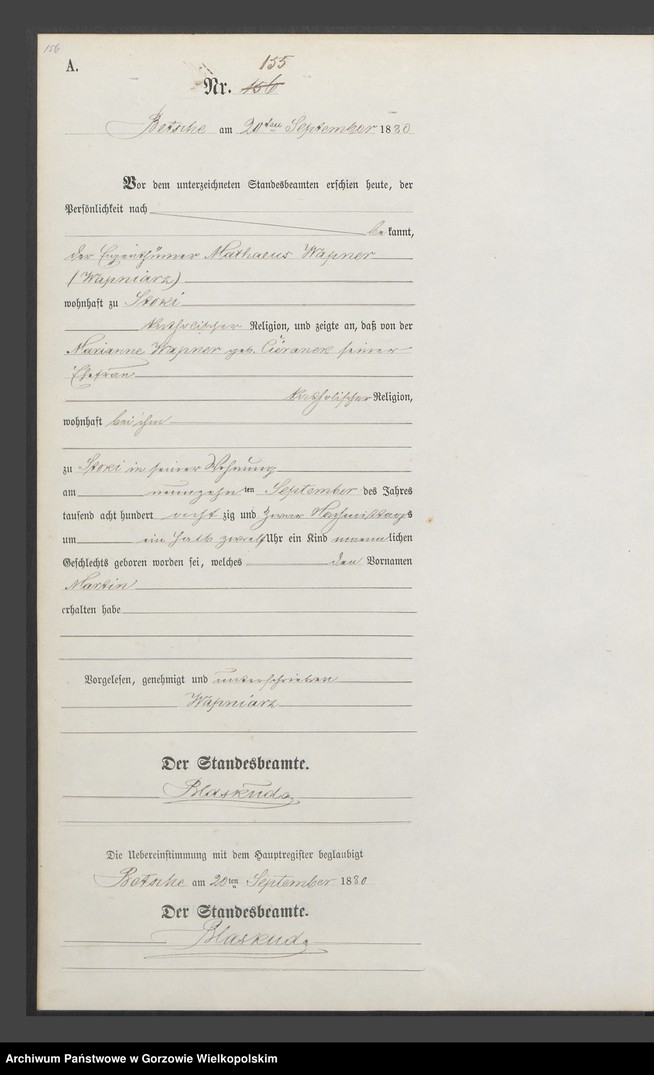 156
A.
155
Nr. 156
Betsche am 20ten September 1880
Vor dem unterzeichneten Standesbeamten erschien heute, der
Persönlichkeit nach
be kannt,
der Eigenthümer Mathaeus Wapner
(Wapniarz)
wohnhaft zu Stoki
katholischer Religion, und zeigte an, daß von der
Marianne Wapner geb. Cieranek seiner
Ehefrau
katholischer Religion,
wohnhaft bei ihm
zu Stoki in seiner Wohnung
am neunzehn ten September des Jahres
tausend acht hundert acht zig und zwar Nachmittags
um ein halb zwölf Uhr ein Kind männlichen
Geschlechts geboren worden sei, welches den Vornamen
Martin
erhalten habe
Vorgelesen, genehmigt und unterschrieben
Wapniarz
Der Standesbeamte.
Blaskuda
Die Uebereinstimmung mit dem Hauptregister beglaubigt
Betsche am 20ten September 1880
Der Standesbeamte.
Blaskuda
Archiwum Państwowe w Gorzowie Wielkopolskim